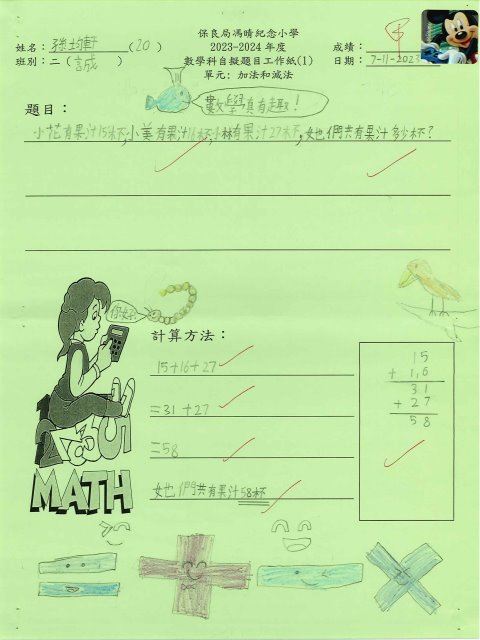 保良局馮晴紀念小學
姓名：孫均軒(20)
2023-2024 年度
成績：甲
班別：二(誠)
數學科自擬題目工作紙(1)
日期：7-11-2023
單元：加法和減法
數學真有趣！
題目：
小花有果汁15杯,小美有果汁16杯,小林有果汁27杯,她們共有果汁多少杯？
你好!
計算方法：
15+16+27
=31+27
=58
她們共有果汁58杯
15
+ 1,6
31
+ 27
58
MATH